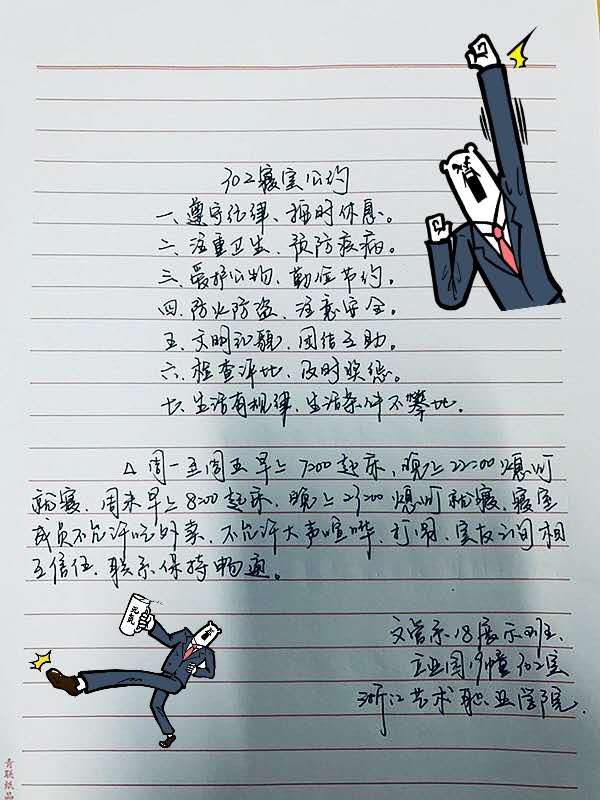 302寝室公约
一、遵守纪律、按时休息。
二、注重卫生、预防疾病。
三、爱护公物、勤俭节约。
四、防火防盗、注意安全。
五、文明礼貌、团结互助。
六、检查评比、及时奖惩。
七、生活有规律、生活条件不攀比.
△周一至周五早上7:00起床,晚上22:00熄灯
就寝、周末早上8:00起床、晚上23:00熄灯就寝、寝室
成员不允许吃外卖、不允许大声喧哗、打闹、室友之间相
互信任、联系保持畅通。
文管系18展示班
幢302室
浙江艺术职业学院.
元气
青联纸品